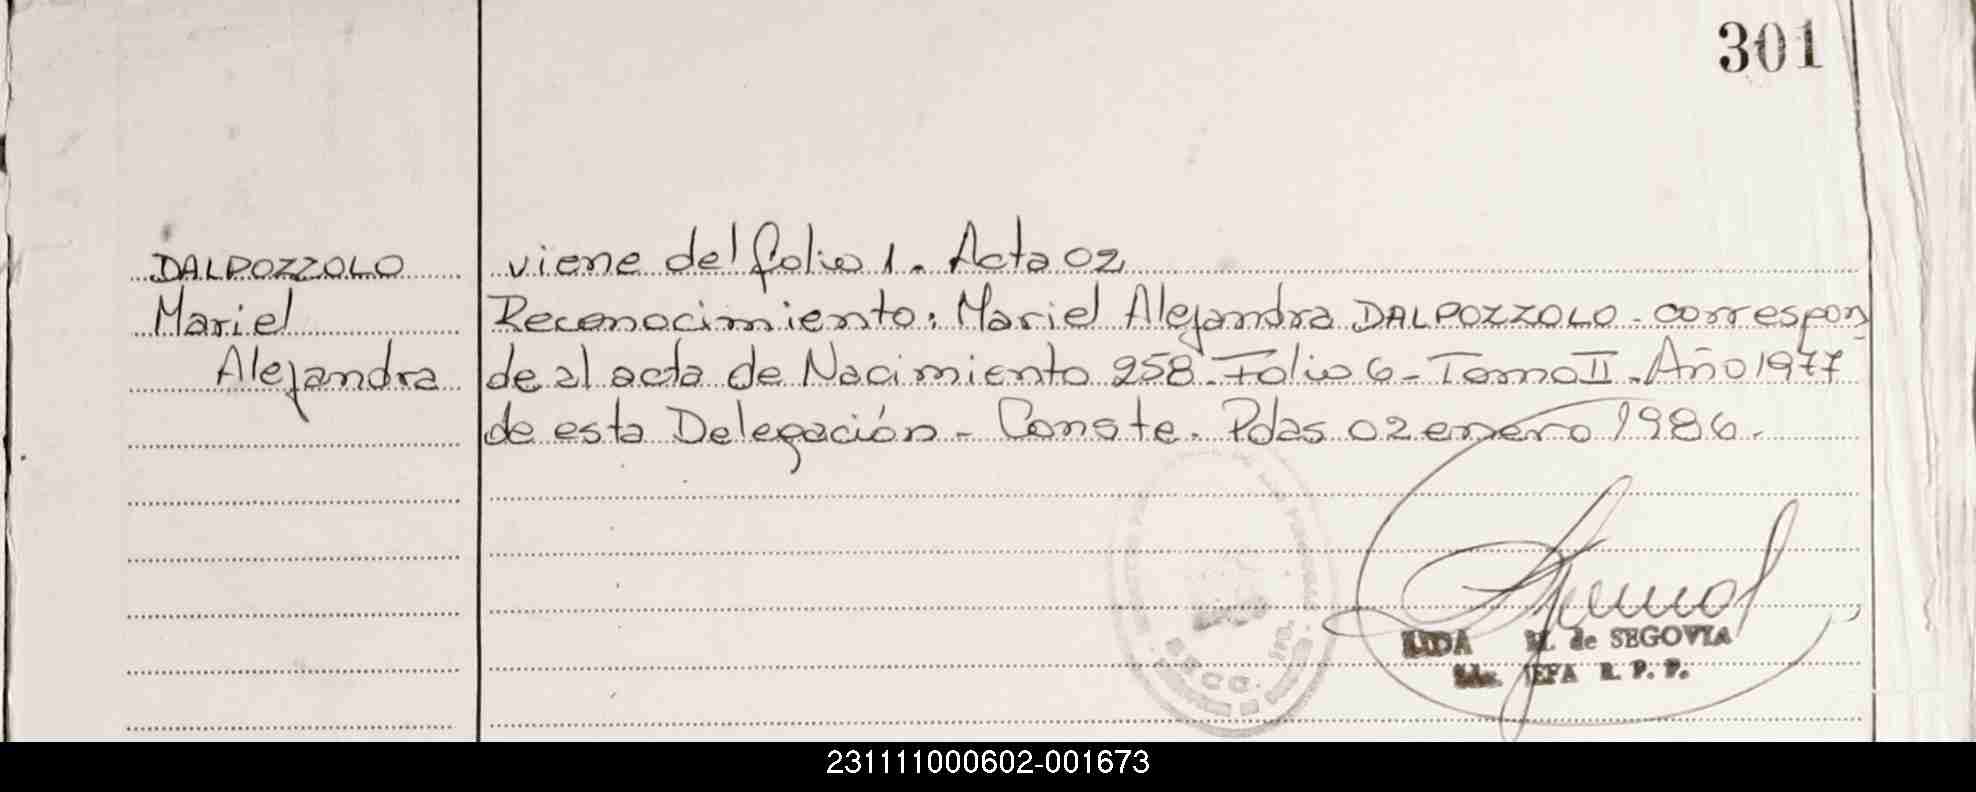 301
DALPOZZOLO
Mariel
Alejandra
viene del folio 1. Acta 02
Reconocimiento: Mariel Alejandra DALPOZZOLO - correspon
de al acta de Nacimiento 258 - Folio 6 - Tomo II - Año 1977
de esta Delegación - Conste. Pdas 02 enero 1986.
M. de SEGOVIA
JEFA R. P. P.
231111000602-001673